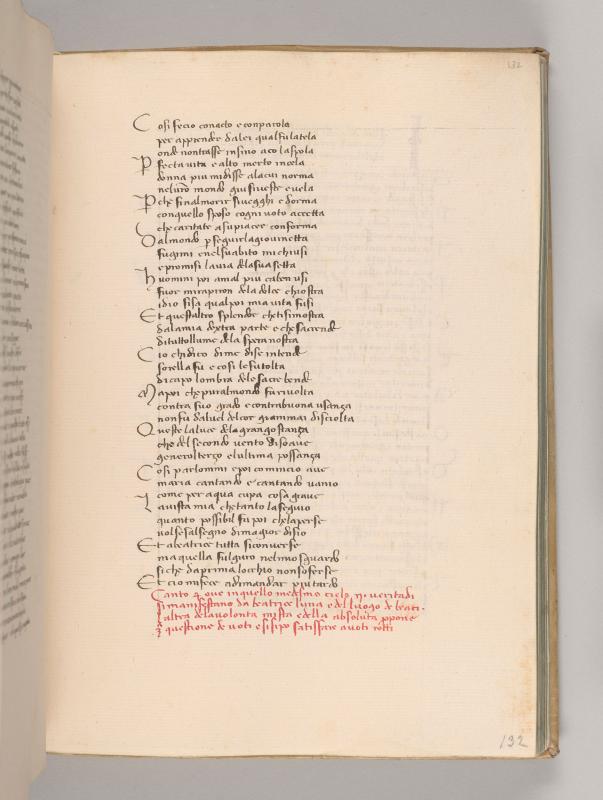 132
Cosi fecio conacto e conparola
per apprender dalei qual fu latela
onde nontrasse insino aco laspola
Pfecta vita e alto merto incela
donna piu midisse alacui norma
nel vro mondo giu siveste e vela
Pche sinalmorir sivegghi e dorma
conquello sposo cogni voto accetta
che caritate asupiacer conforma
Dalmondo p seguirla giovinetta
fugimi enelsuabito mi chiusi
e promisi lavia dela sua setta
Huomini poi amal piu cabenusi
fuor mirapiron dela dolce chiostra
idio sisa qual poi mia vita fusi
Et questaltro splendor chetisimostra
dalamia dextra parte e chesaccende
di tuttollume dela spera nostra
Cio chidico dime dise intende
sorella fu e cosi lefu tolta
dicapo lombra dele sacre bende
Mapoi che pur almondo fu rivolta
contra suo grado e contrabuona usanza
nonfu dalvel delcor giammai disciolta
Queste laluce dela gran gostanza
che del secondo vento disoave
genero lterzo elultima possanza
Cosi parlommi epoi comincio ave
maria cantando e cantando vanio
come per aqua cupa cosa grave
La vista mia chetanto laseguio
quanto possibil fu poi chelaperse
volsesalsegno dimagior disio
Et abeatrice tutta siconverse
ma quella fulguro nelmio sguardo
siche daprima locchio nonsoferse
Et cio mifece adimandar piu tardo
Canto 4 ove inquello medesimo cielo ij verita di
si manifestano da beatrice luna e del luogo de beati
laltra dela volonta mista e della absoluta ppone
3 questione de voti e sisipo satisfare a voti rotti
132